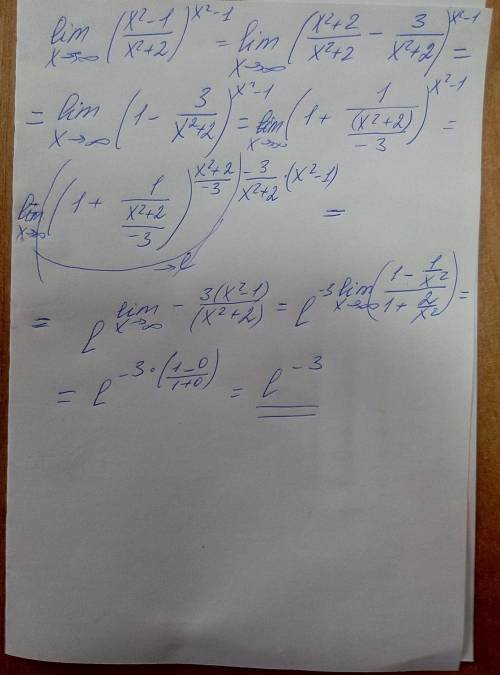 lim x→∞ ((x²-1)/(x²+2))^(x²-1) = lim x→∞ ((x²+2)/(x²+2) - 3/(x²+2))^(x²-1) =
= lim x→∞ (1 - 3/(x²+2))^(x²-1) = lim x→∞ (1 + 1/((x²+2)/-3))^(x²-1) =
lim x→∞ ((1 + 1/((x²+2)/-3))^((x²+2)/-3))^(-3/(x²+2) · (x²-1)) =
→ e
= e^(lim x→∞ - 3(x²-1)/(x²+2)) = e^(-3 lim x→∞ ((1 - 1/x²)/(1 + 2/x²))) =
= e^(-3·((1-0)/(1+0))) = e^(-3)